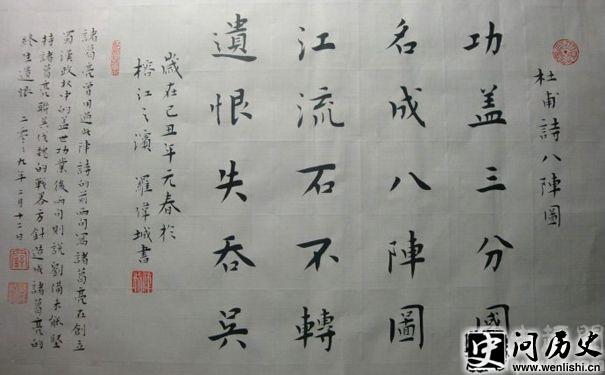 杜甫詩八陣圖
功盖三分國
名成八陣圖
江流石不轉
遺恨失吞吳
歲在己丑年元春於
榕江之濱 羅偉城書
諸葛亮曾用過此陣詩的前两句寫諸葛亮在創立
蜀漢政权中的盖世功業後两句則説劉備未能堅
持諸葛亮聯吳伐魏的戰畧方針造成諸葛亮的
终生遺恨 二〇〇九年二月十二日
史问历史
www.wenlishi.cn